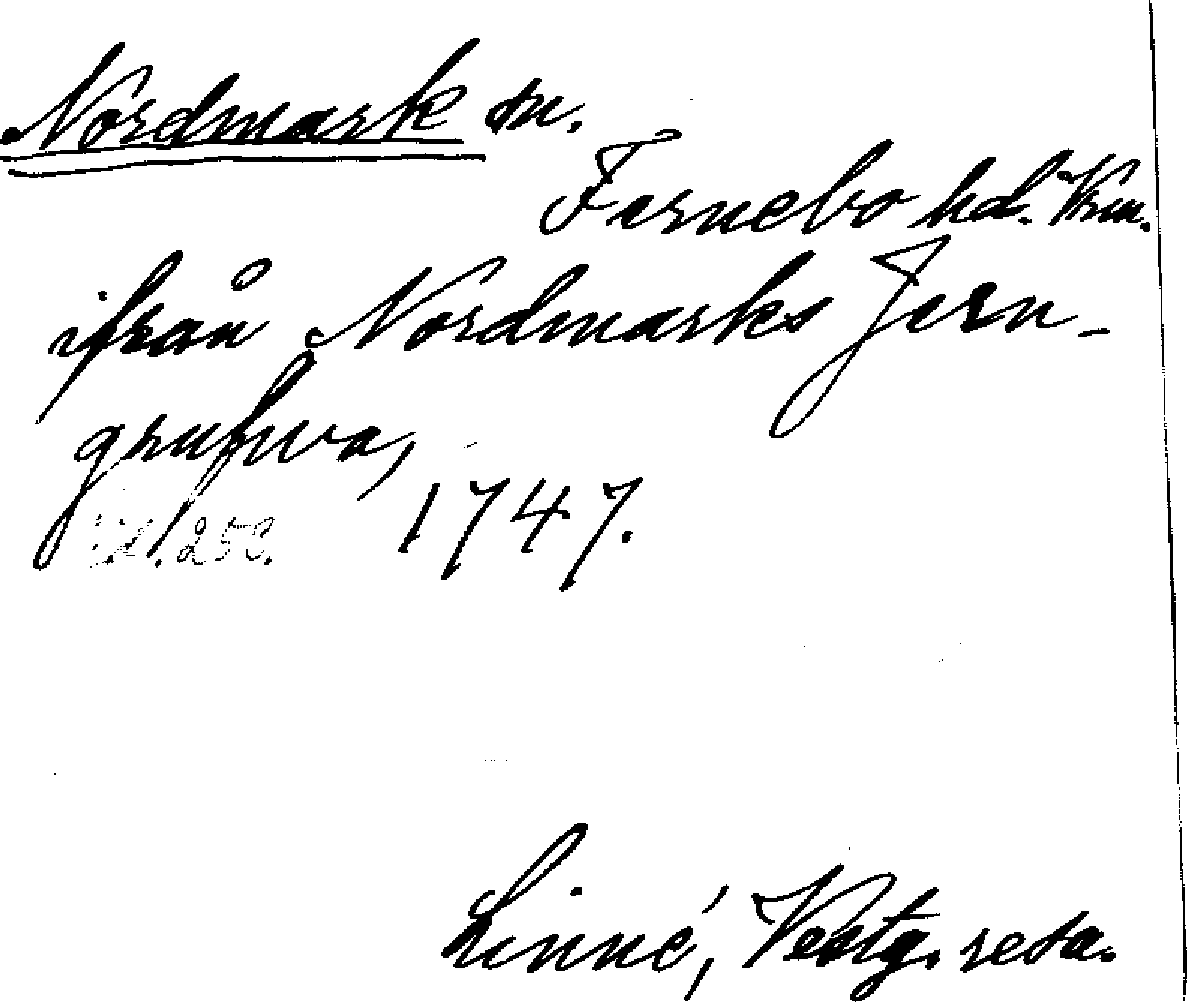 Nordmark sn.
Fernebo hd. Vrm.
ifrån Nordmarks Jern-
grufwa,
1747.
Linné, Vestg. resa.